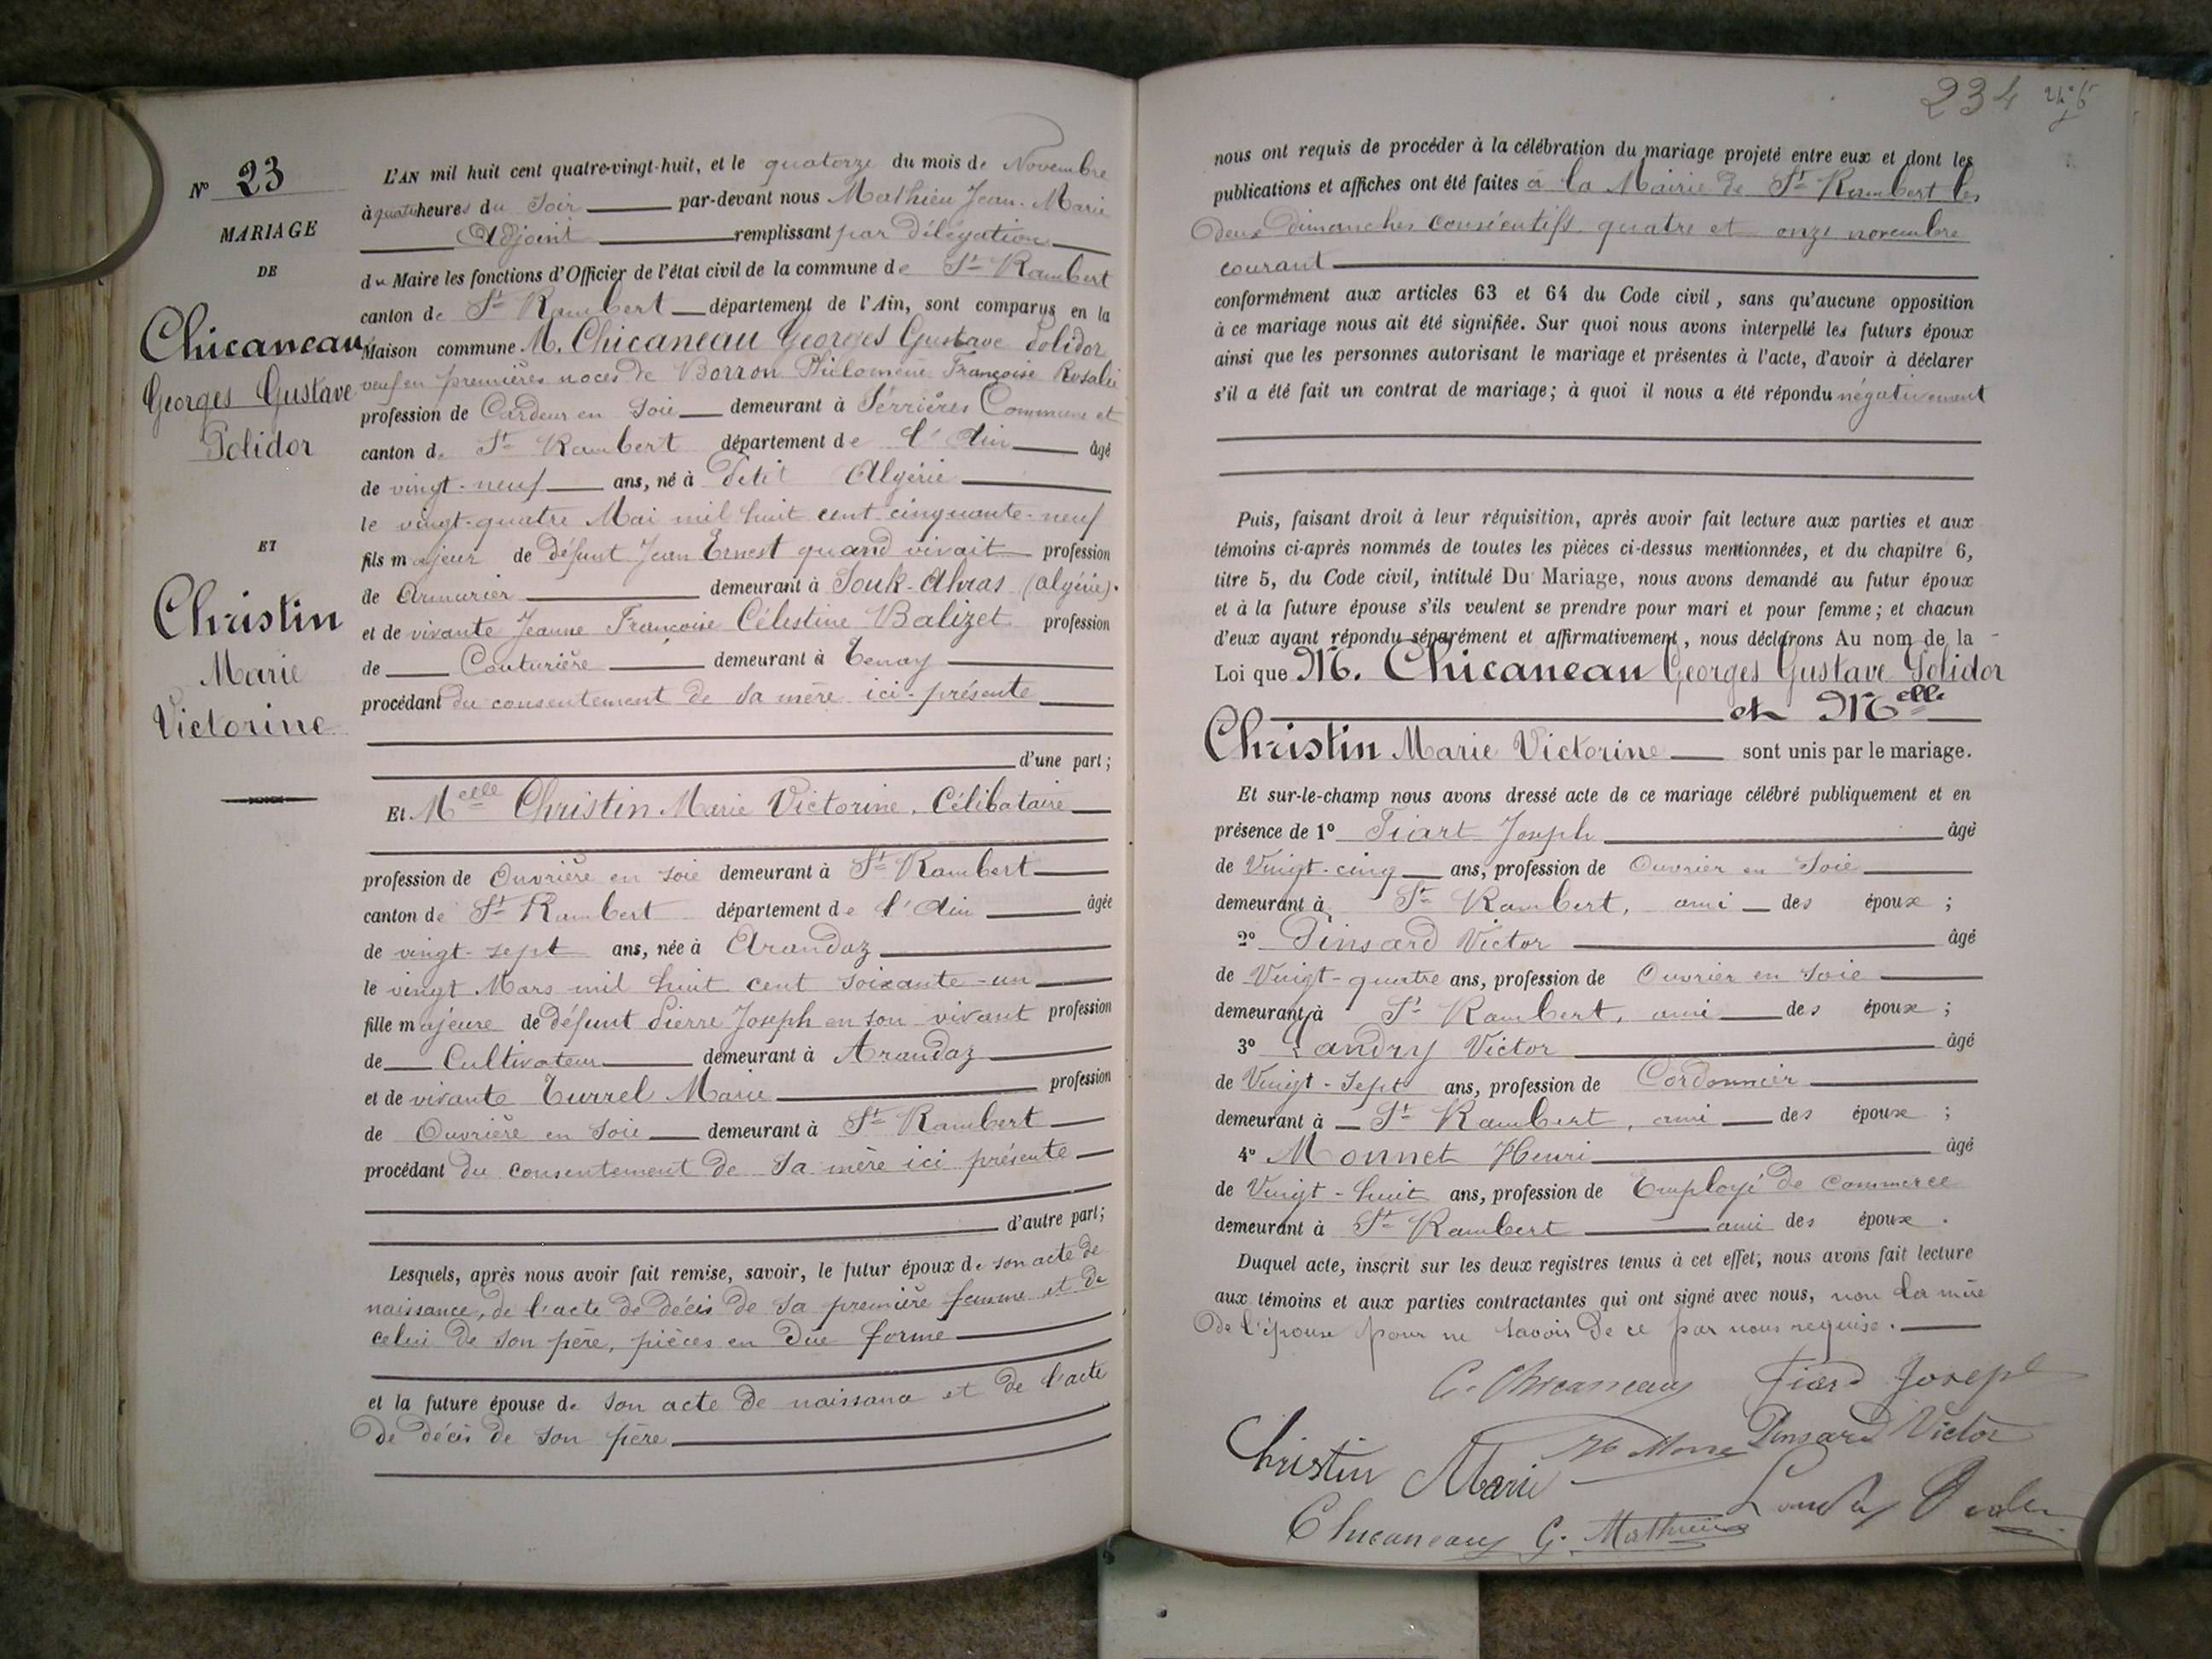 N° 23
MARIAGE
DE
Chicaneau
Georges Gustave
Polidor
ET
Christin
Marie
Victorine
L'AN mil huit cent quatre-vingt-huit, et le quatorze du mois de Novembre
à quatre heures du soir par-devant nous Mathieu Jean-Marie
Adjoint remplissant par Délégation
du Maire les fonctions d'Officier de l'état civil de la commune de St Rambert
canton de St Rambert département de l'Ain, sont comparus en la
Maison commune M. Chicaneau Georges Gustave Polidor
veuf en premières noces de Borron Philomène Françoise Rosalie
profession de Cardeur en soie demeurant à Serrières Commune et
canton de St Rambert département de l'Ain âgé
de vingt-neuf ans, né à Algérie
le vingt-quatre Mai mil huit cent cinquante-neuf
fils majeur de défunt Jean Ernest quand vivait profession
de Armurier demeurant à Souk-Ahras (Algérie).
et de vivante Jeanne Françoise Célestine Balizet profession
de Couturière demeurant à Tenay
procédant du consentement de sa mère ici-présente
d'une part;
Et Melle Christin Marie Victorine, Célibataire
profession de Ouvrière en soie demeurant à St Rambert
canton de St Rambert département de l'Ain âgée
de vingt-sept ans, née à Arandaz
le vingt Mars mil huit cent soixante-un
fille majeure de défunt Pierre Joseph en son vivant profession
de Cultivateur demeurant à Arandaz
et de vivante Turrel Marie profession
de Ouvrière en soie demeurant à St Rambert
procédant du consentement de sa mère ici présente
d'autre part;
Lesquels, après nous avoir fait remise, savoir, le futur époux de son acte de
naissance, de l'acte de décès de sa première femme et de
celui de son père, pièces en due forme
et la future épouse de son acte de naissance et de l'acte
de décès de son père
234
nous ont requis de procéder à la célébration du mariage projeté entre eux et dont les
publications et affiches ont été faites à la Mairie de St Rambert les
deux dimanches consécutifs quatre et onze novembre
courant
conformément aux articles 63 et 64 du Code civil, sans qu'aucune opposition
à ce mariage nous ait été signifiée. Sur quoi nous avons interpellé les futurs époux
ainsi que les personnes autorisant le mariage et présentes à l'acte, d'avoir à déclarer
s'il a été fait un contrat de mariage; à quoi il nous a été répondu négativement
Puis, faisant droit à leur réquisition, après avoir fait lecture aux parties et aux
témoins ci-après nommés de toutes les pièces ci-dessus mentionnées, et du chapitre 6,
titre 5, du Code civil, intitulé Du Mariage, nous avons demandé au futur époux
et à la future épouse s'ils veulent se prendre pour mari et pour femme; et chacun
d'eux ayant répondu séparément et affirmativement, nous déclarons Au nom de la
Loi que M. Chicaneau Georges Gustave Polidor
et Melle
Christin Marie Victorine sont unis par le mariage.
Et sur-le-champ nous avons dressé acte de ce mariage célébré publiquement et en
présence de 1° Fiart Joseph âgé
de Vingt-cinq ans, profession de Ouvrier en soie
demeurant à St Rambert, ami des époux;
2° Pinsard Victor âgé
de Vingt-quatre ans, profession de Ouvrier en soie
demeurant à St Rambert, ami des époux;
3° Landry Victor âgé
de Vingt-sept ans, profession de Cordonnier
demeurant à St Rambert, ami des époux;
4° Monnet Henri âgé
de Vingt-huit ans, profession de Employé de Commerce
demeurant à St Rambert ami des époux.
Duquel acte, inscrit sur les deux registres tenus à cet effet, nous avons fait lecture
aux témoins et aux parties contractantes qui ont signé avec nous, non la mère
de l'épouse pour ne savoir de ce par nous requise.
C. Chicaneau Fiard Joseph
Pinsard Victor
Christin Marie
Chicaneau G. Mathieu